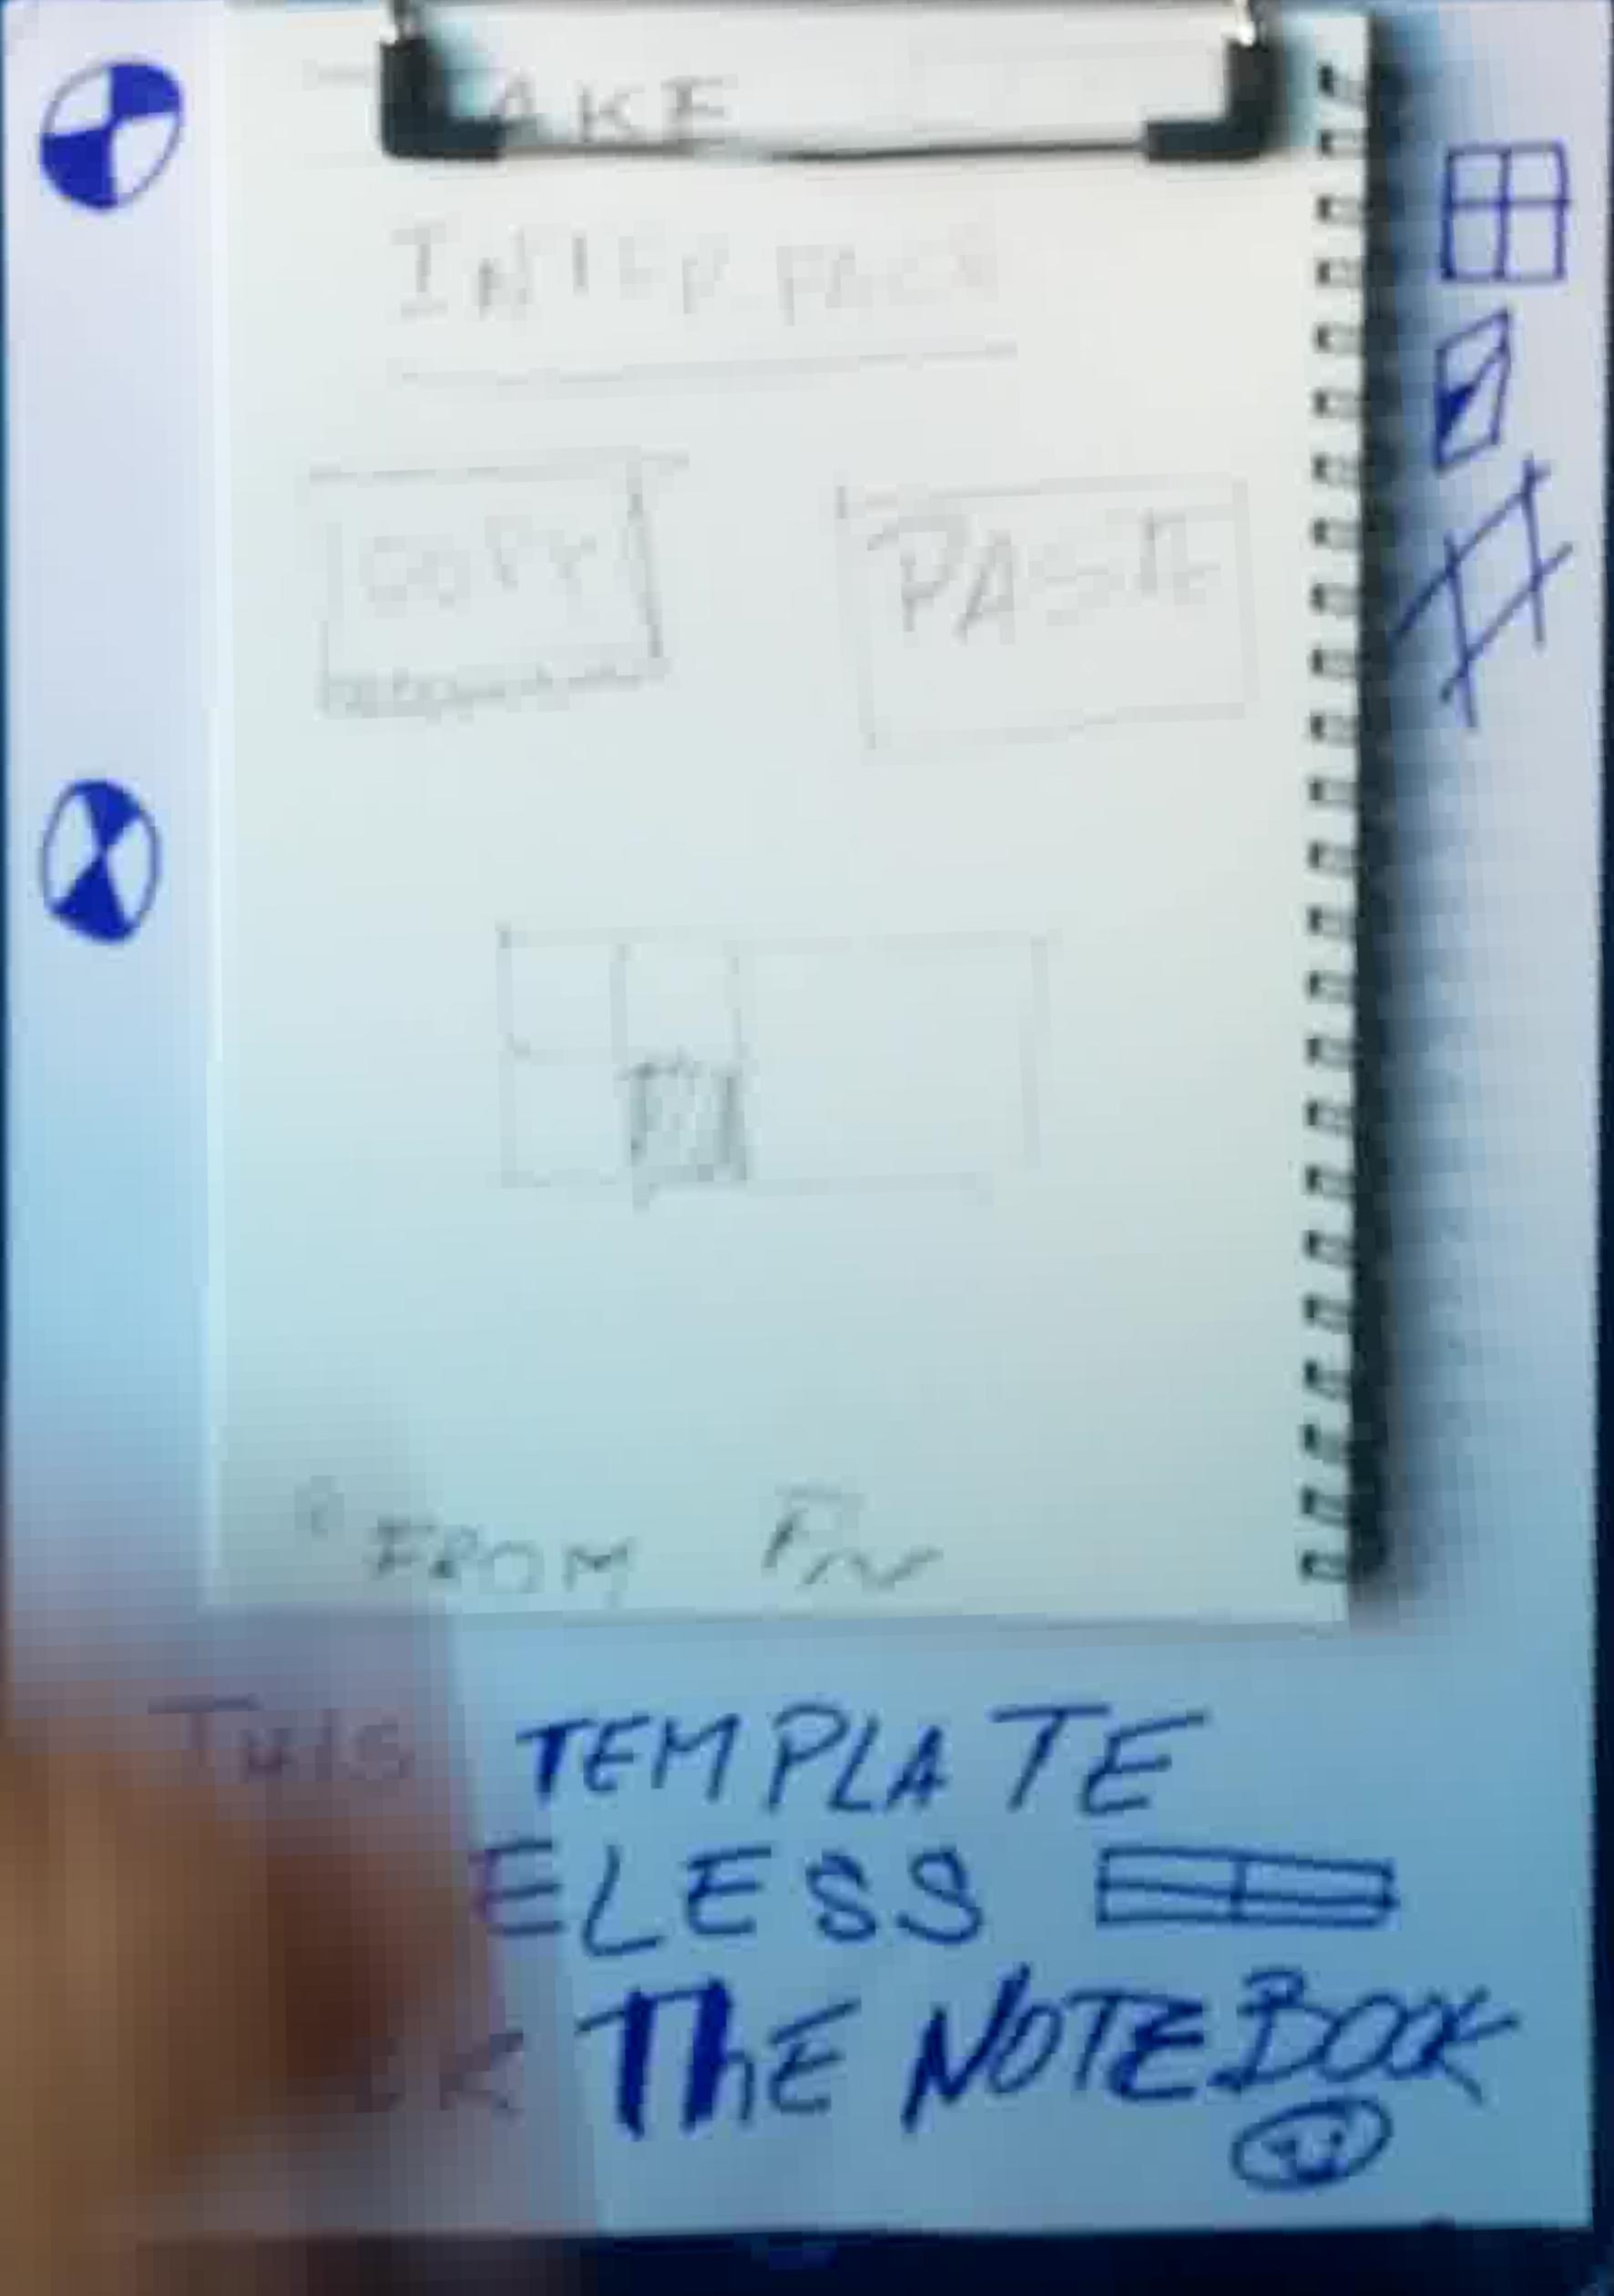 AKE
INTERFACE
COPY PASTE
FROM
THIS TEMPLATE
ELESS
THE NOTEBOOK